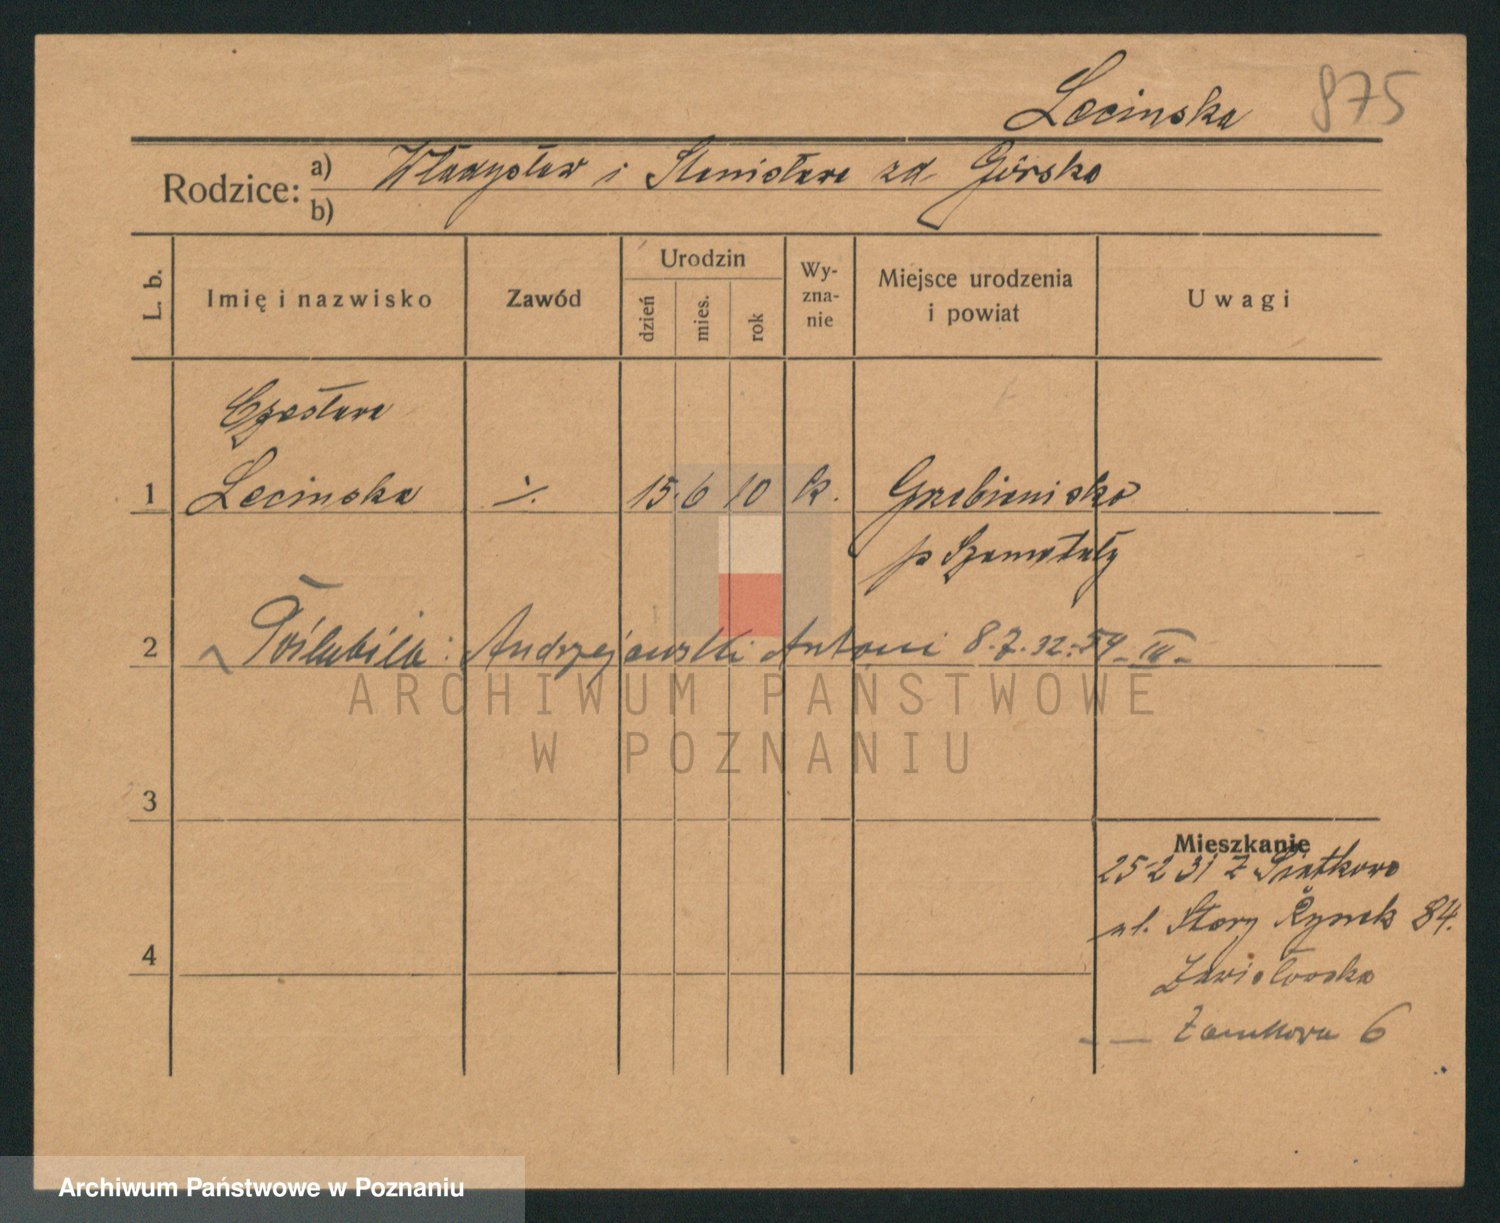 Lecinska 875
Rodzice: a) Władysław i Stanisława zd Górska
b)
L. b.
Imię i nazwisko
Zawód
Urodzin
dzień
mies.
rok
Wy-
zna-
nie
Miejsce urodzenia
i powiat
Uwagi
Czesława
1 Lecinska ·/. 15. 6 10 k. Grzebienisko
p Szamotuły
2 Poślubiła: Andrzejewski Antoni 8.7.32. 59 III
3
4
Mieszkanie
25 2 31 z Piątkowo
ul. Stary Rynek 84.
Zamkowa 6
ARCHIWUM PAŃSTWOWE
W POZNANIU
Archiwum Państwowe w Poznaniu